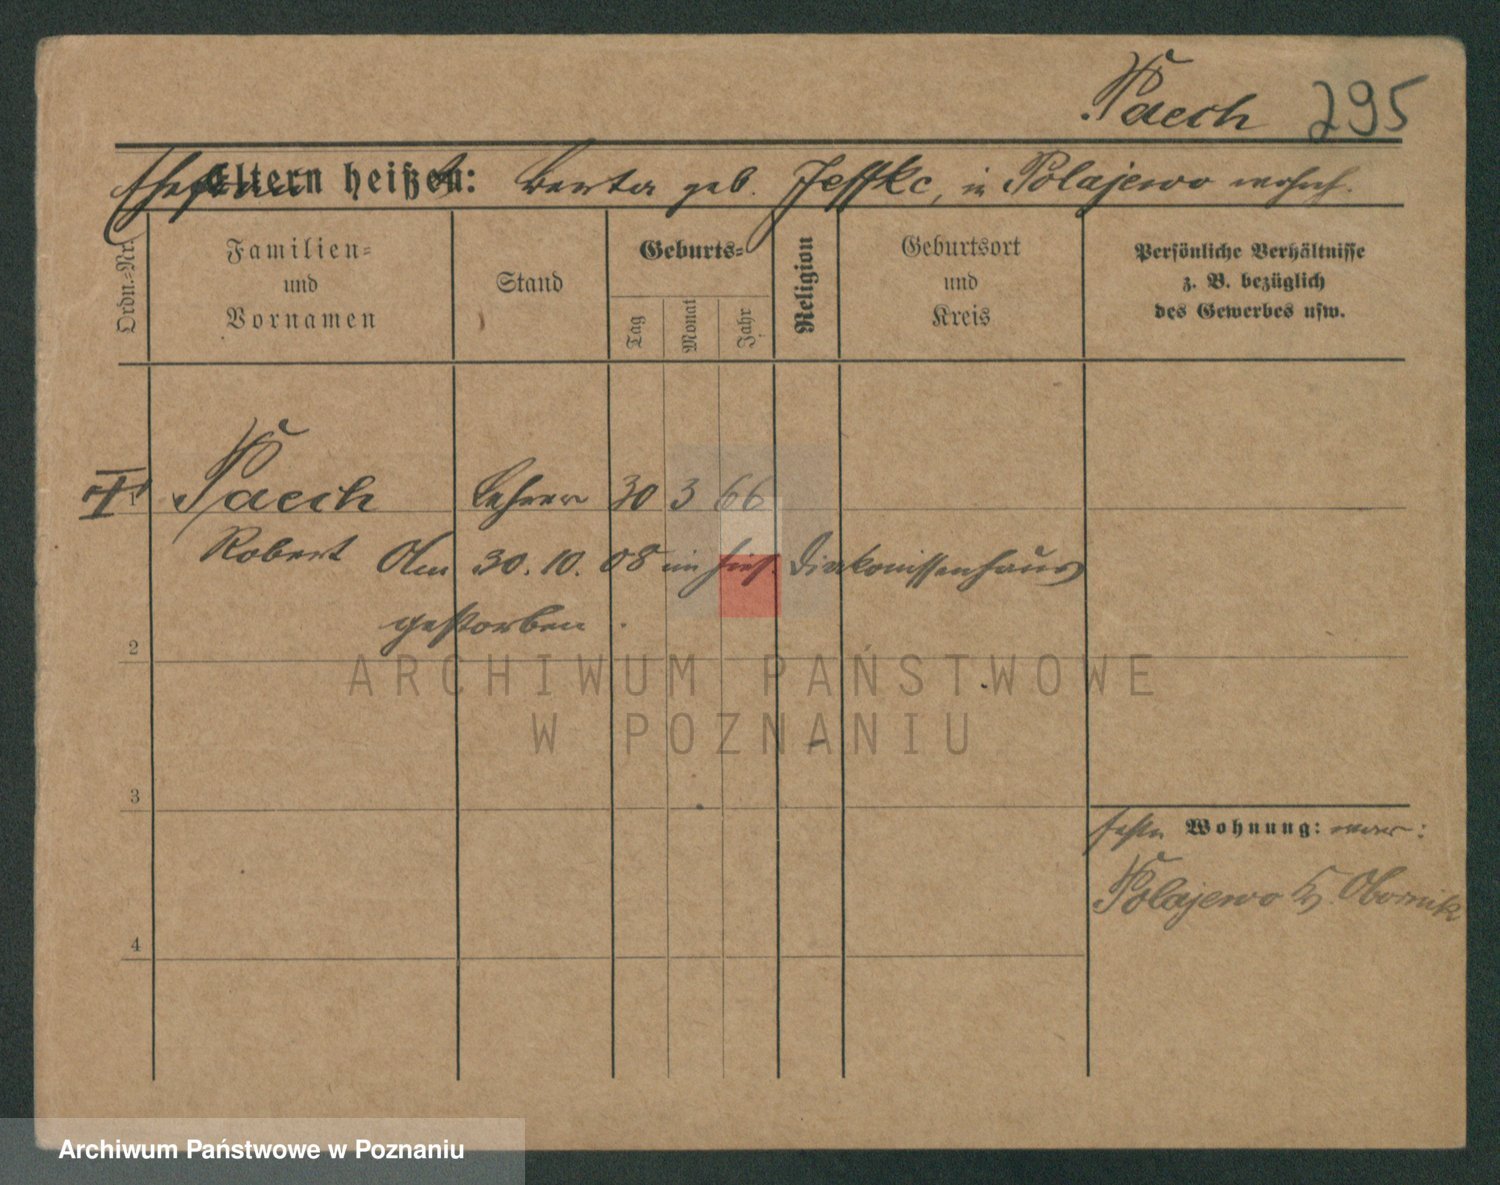 Paech 295
Ehefrau heißt: Berta geb. Jeffke, in Polajewo wohnh.
Ordn.=Nr.
Familien=
und
Vornamen
Stand
Geburts=
Tag
Monat
Jahr
Religion
Geburtsort
und
Kreis
Persönliche Verhältnisse
z. B. bezüglich
des Gewerbes usw.
1 Paech Lehrer 30 3 66
Robert Am 30. 10. 08 im hies. Diakonissenhaus
gestorben.
2
3
4
Wohnung: war:
Polajewo Kr. Obornik
ARCHIWUM PAŃSTWOWE
W POZNANIU
Archiwum Państwowe w Poznaniu